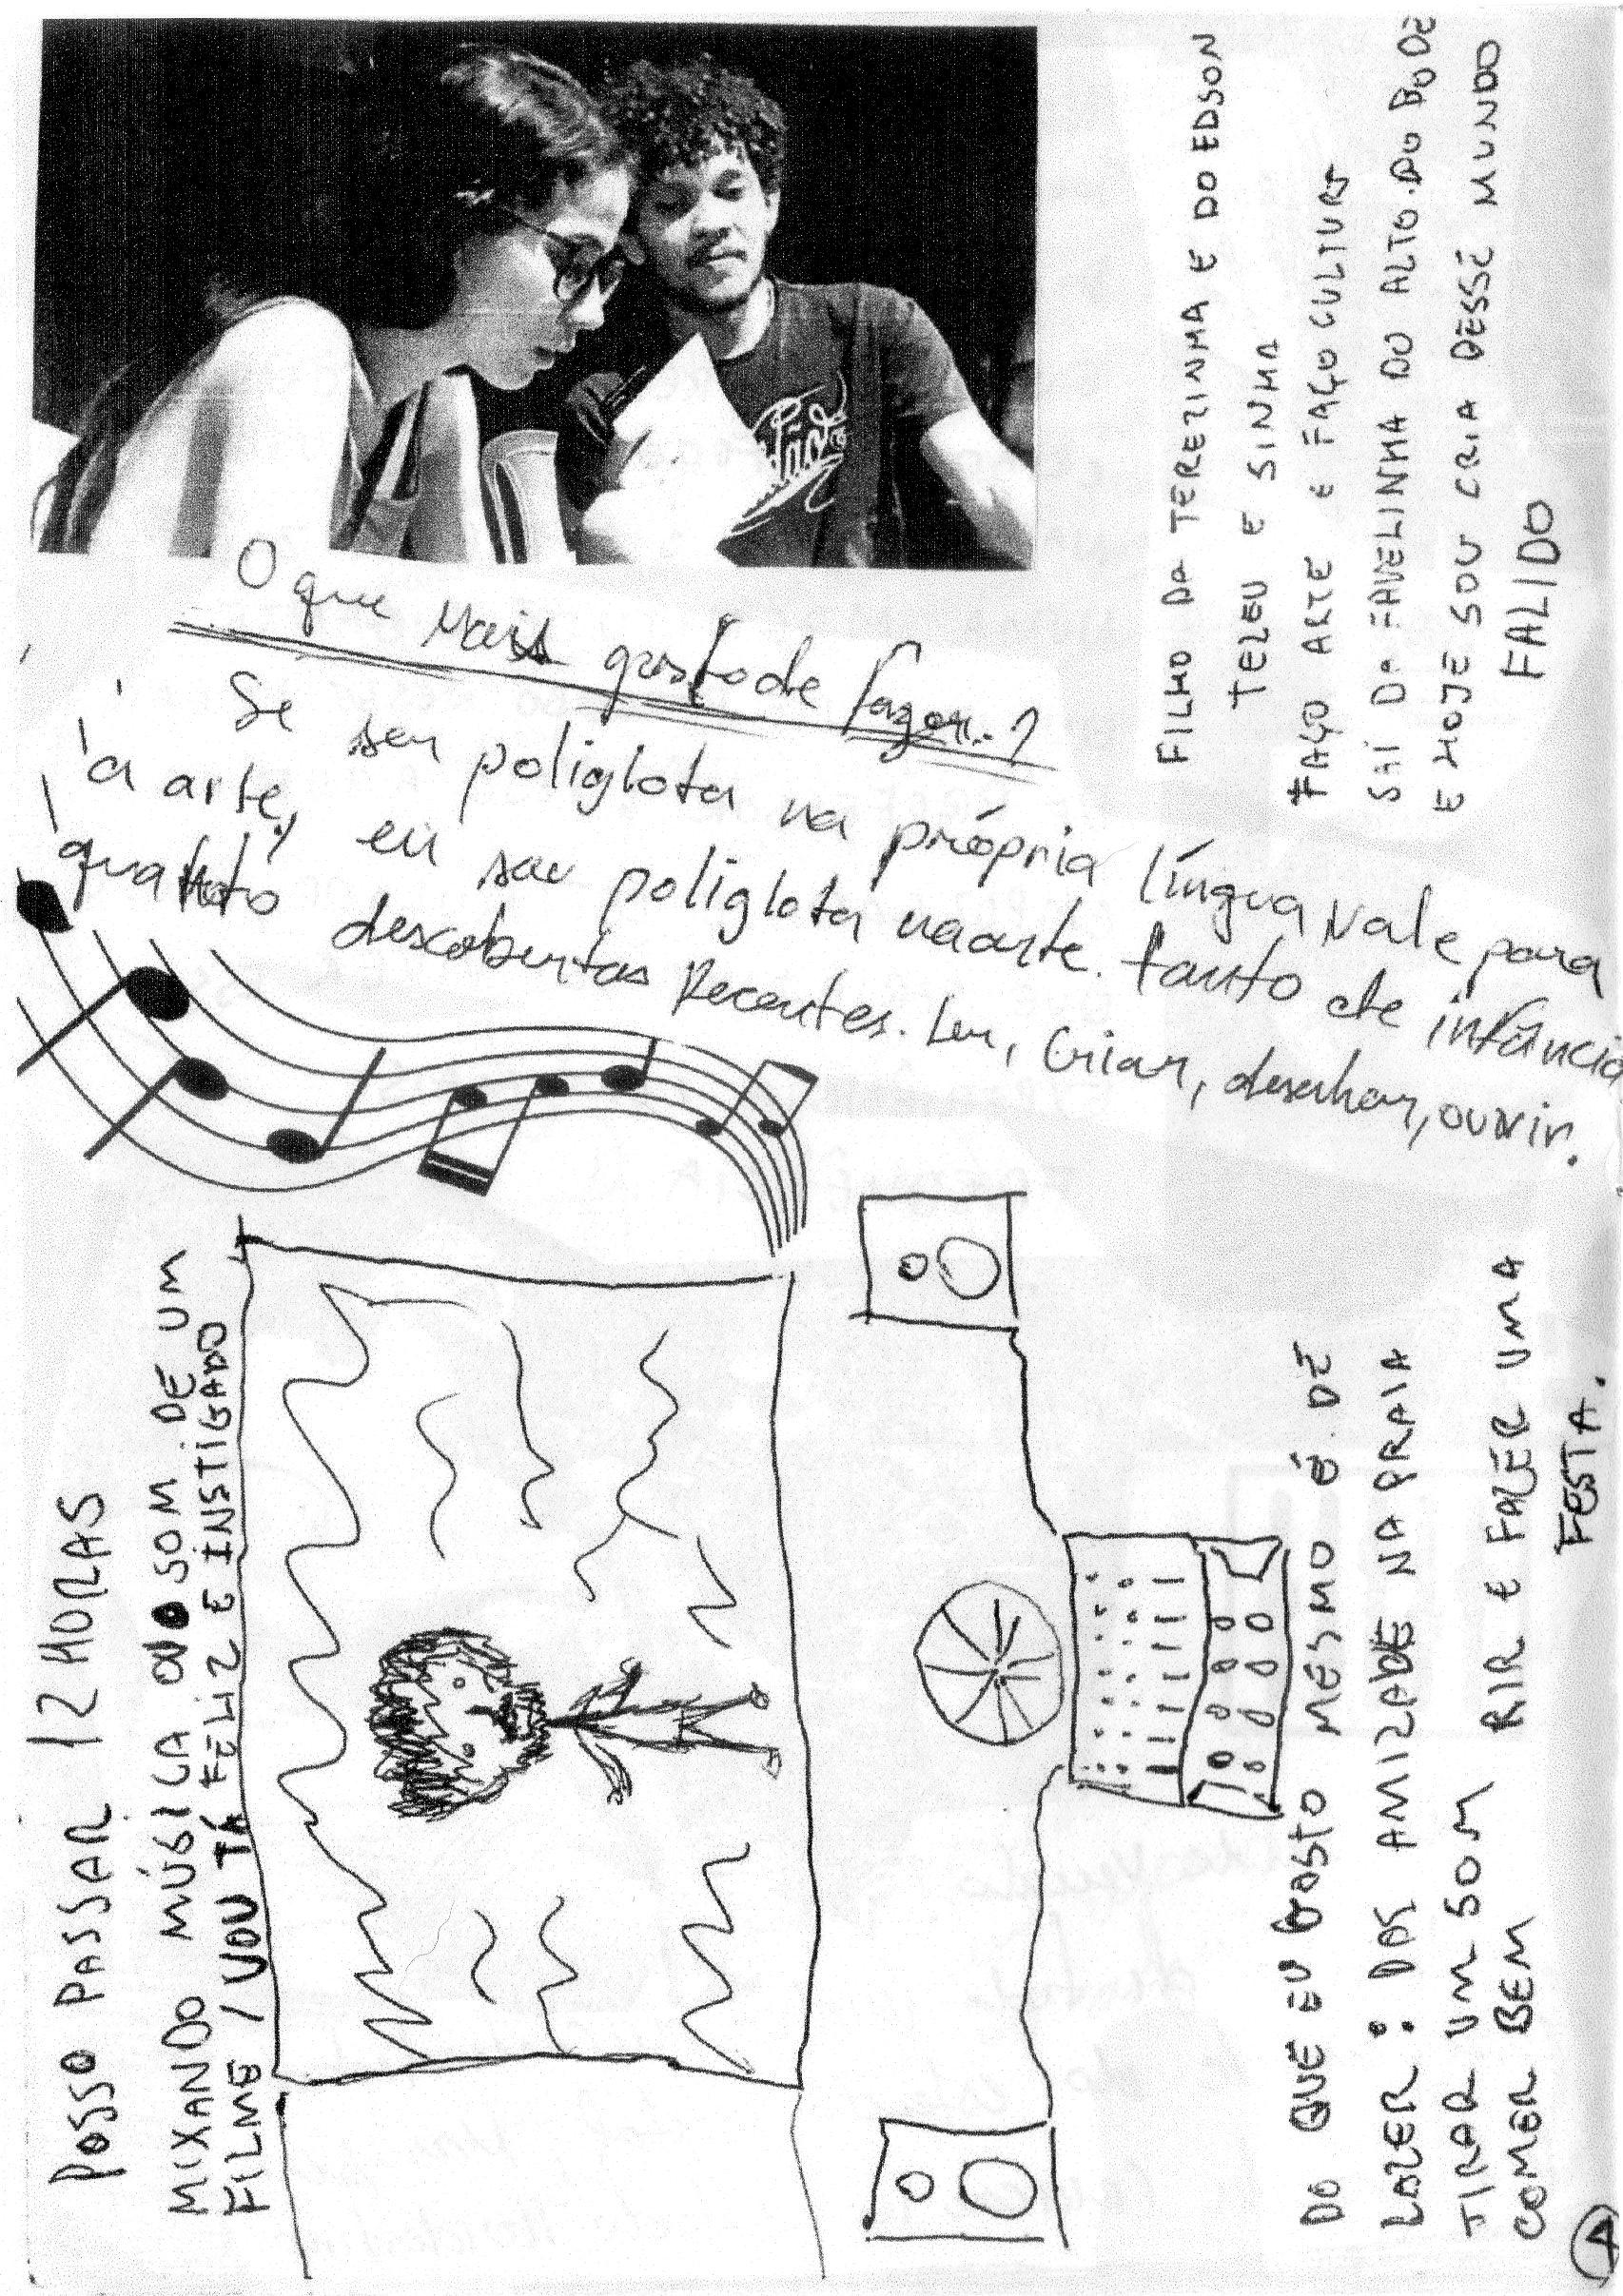 FILHO DA TEREZINHA E DO EDSON
TEZEU E SINHA
FAÇO ARTE E FAÇO CULTURA
SAÍ DA FAVELINHA DO ALTO DO BODE
E HOJE SOU CRIA DESSE MUNDO
FALIDO
O que Mais gosto de fazer..?
Se ser poliglota na própria língua vale para
a arte, eu sou poliglota na arte. tanto de infância
quanto descobertas Recentes. Ler, Criar, desenhar, ouvir.
POSSO PASSAR 12 HORAS
MIXANDO MÚSICA OU O SOM DE UM
FILME / VOU TÁ FELIZ E INSTIGADO
DO QUE EU GOSTO MESMO É DE
LAZER: DAS AMIZADE NA PRAIA
TIRAR UM SOM RIR E FAZER UMA
COMER BEM FESTA.